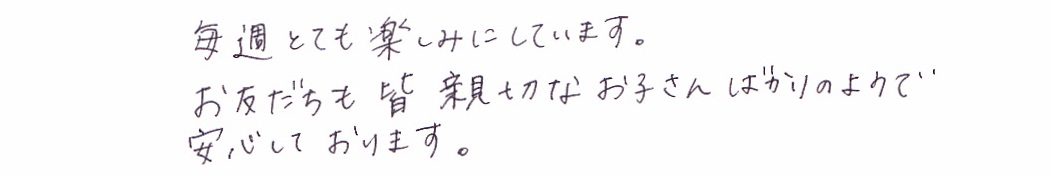 毎週とても楽しみにしています。
お友だちも皆親切なお子さんばかりのようで
安心しております。